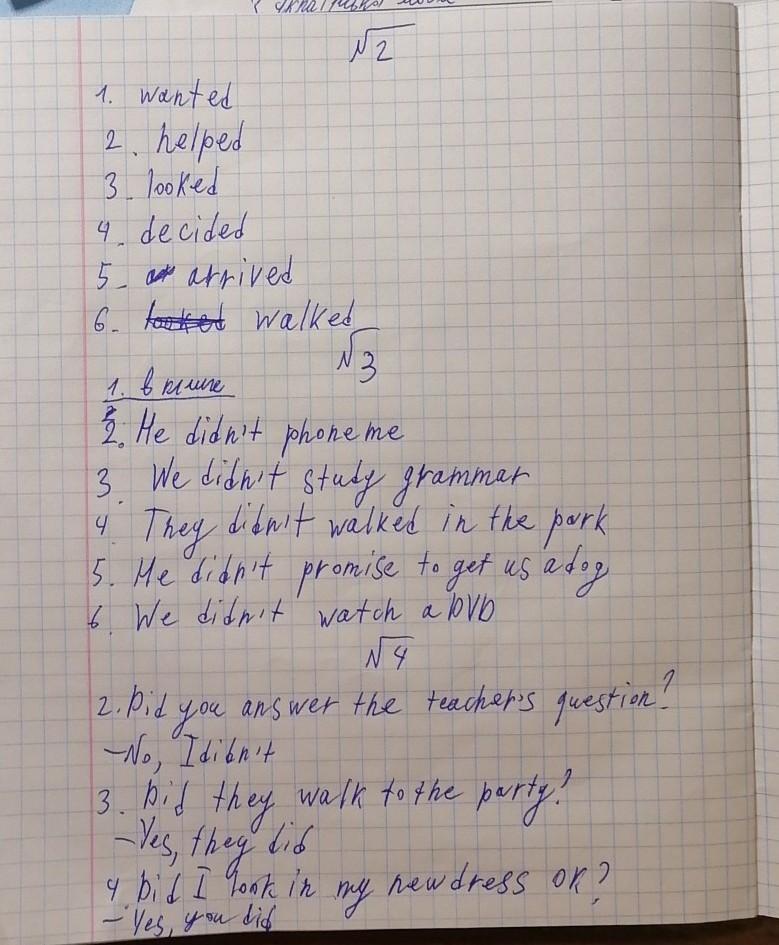 Українська мова
√2
1. wanted
2. helped
3. looked
4. decided
5. arrived
6. walked
√3
1. в книге
2. He didn't phone me
3. We didn't study grammar
4 They didn't walked in the park
5. He didn't promise to get us a dog
6. We didn't watch a DVD
√4
2. Did you answer the teacher's question?
-No, I didn't
3. Did they walk to the party?
-Yes, they did
4. Did I look in my new dress OK?
- Yes, you did